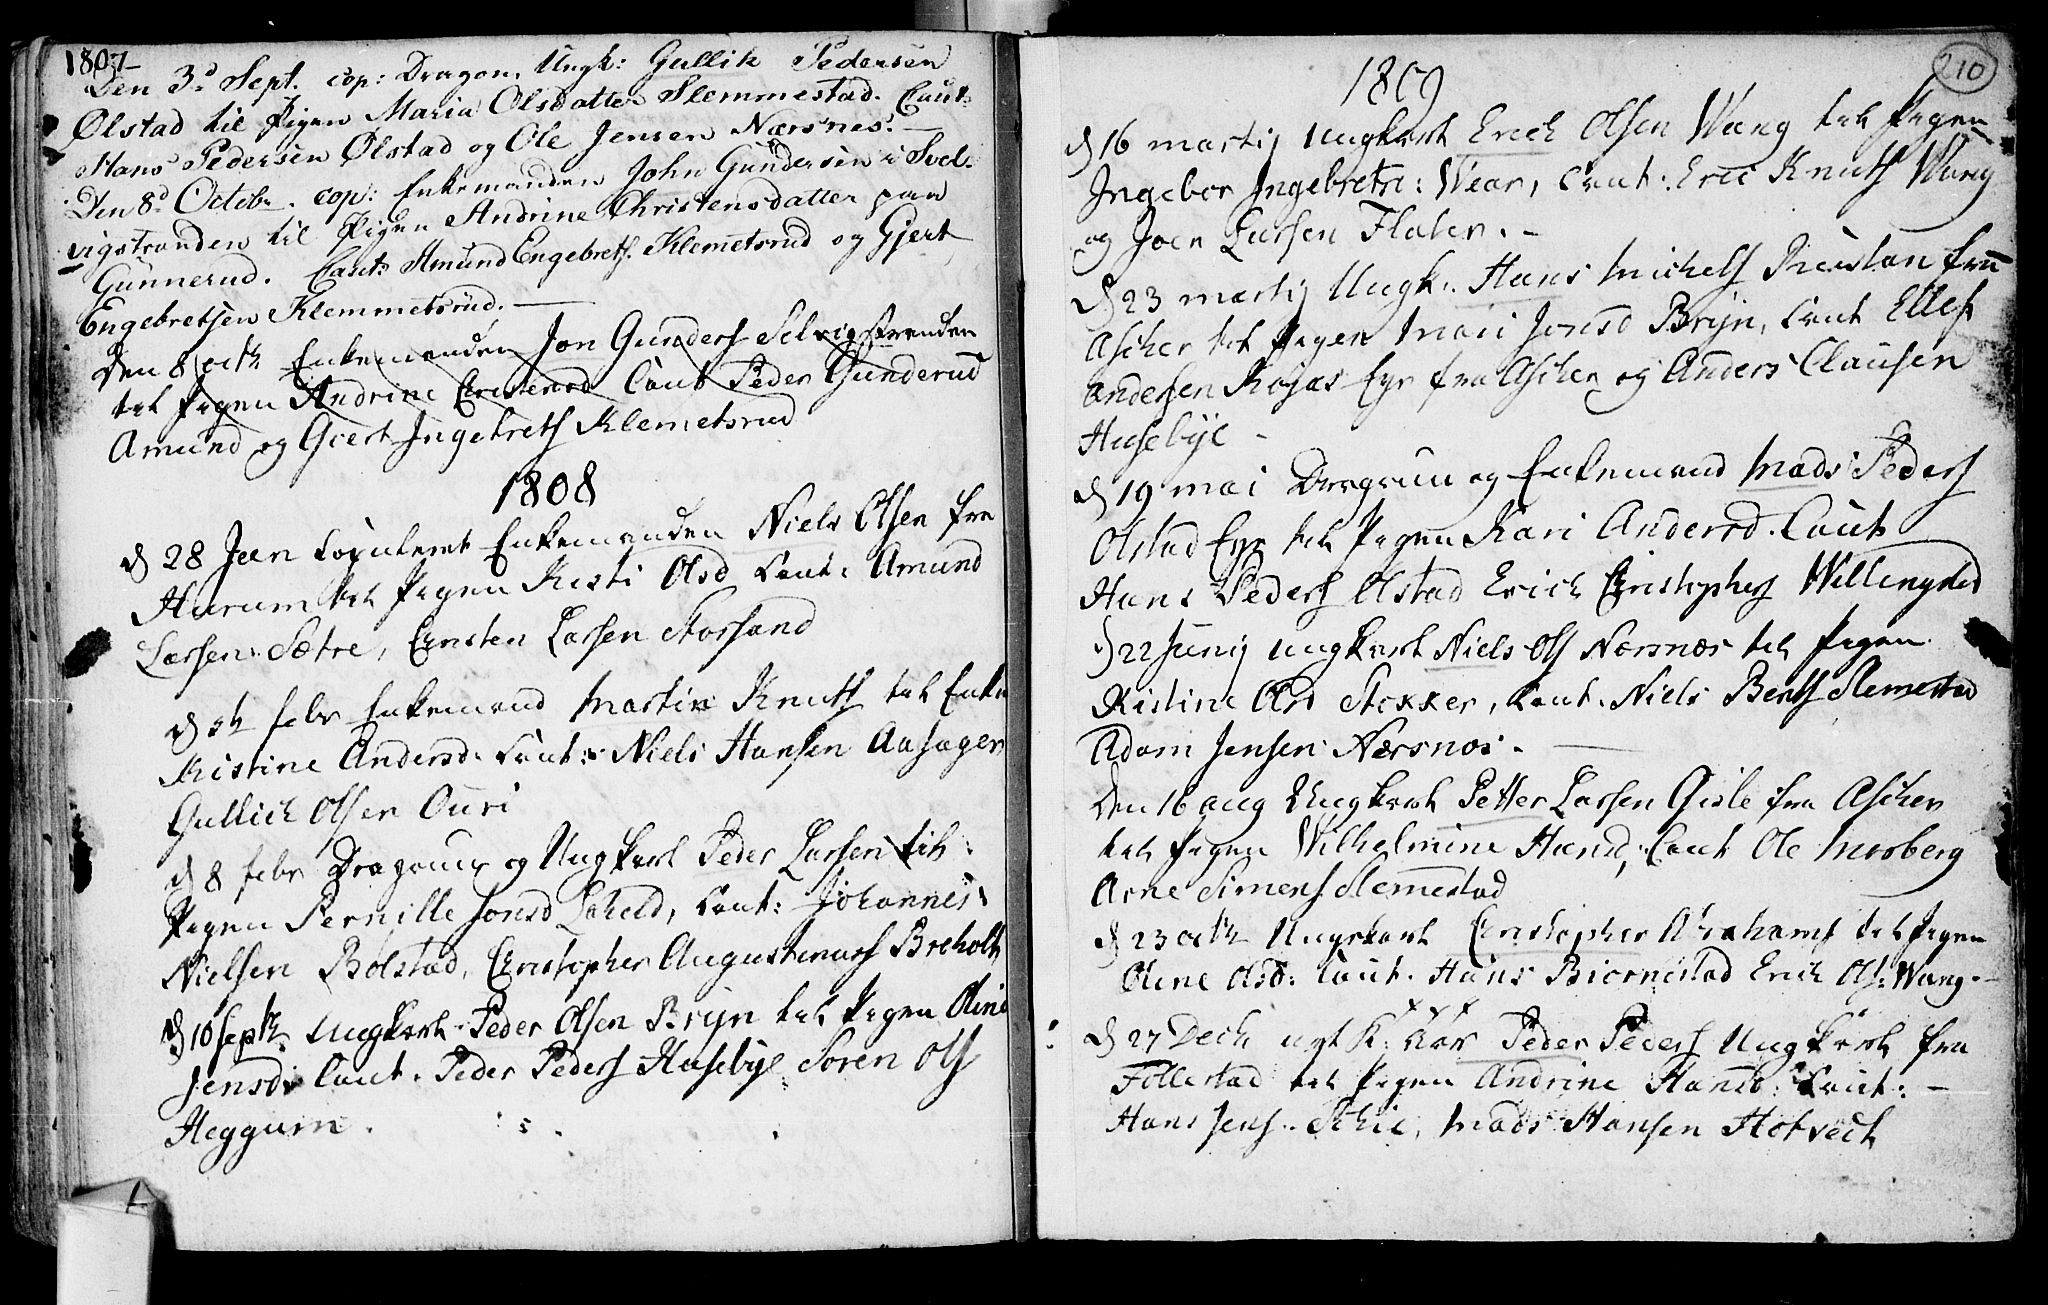 1807
Den 3d Sept. cop: Dragon, Ungk: Gullik Pedersen
Ølstad til Pigen Maria Olsdatter Slemmestad. Caut:
Hans Pedersen Ølstad og Ole Jensen Nærsnes.
Den 8d Octobr. cop: Enkemanden John Gundersen i Svel-
vigstranden til Pigen Andrine Christensdatter paa
Gunnerud. Caut: Amund Engebrets. Klemetsrud og Gjert
Engebretsen Klemmetsrud.
Den 8 octb Enkemanden Jon Gunders Selvigstranden
tel Pigen Andrine Cristensd Caut Peder Gunderud
Amund og Giert Ingebrets Klemetsrud
1808
d 28 Jan Copuleret Enkemanden Niels Olsen fra
Hurum tel Pigen Kisti Olsd Caut: Amund
Larsen Sætre, Cristen Larsen Storsand
d febr Enkemand Martin Knuts tel Enken
Kistine Andersd. Caut: Niels Hansen Aasager
Gullich Olsen Ouri
d 8 febr Dragoun og Ungkarl Peder Larsen til
Pigen Pernille Jonsd Loheld, Caut: Johannes
Nielsen Bolstad, Cristopher Augustinus Breholt
d 10 Septb. Ungkarl Peder Olsen Bryn tel Pigen Oline
Jensd: Caut. Peder Peders Husebye Soren Ols
Heggum.
210
1809
d 16 martij Ungkarl Erich Olsen Wang tel Pigen
Ingebor Ingebretsr: Wear, Caut: Eric Knuts Wang
og Joen Larsen Flaten.
d 23 martij Ungk. Hans Michels fra
Ascher tel Pigen Mari Jonsd Bryn, Caut Ellef
Andersen Eyr fra Ascher og Anders Clausen
Husebye
d 19 mai Dragoun og Enkemand Mads Peders
Olstad Eyr tel Pigen Kari Andersd. Caut
Hans Peders Olstad Erich Cristophers Willingstad
d 22 Junij Ungkarl Niels Ols Nærsnæs tel Pigen
Kistine Olsd Stokker, Caut. Niels Bents Slemestad
Adam Jensen Nærsnæs.
Den 16 aug Ungkarl Petter Larsen Gisle fra Ascher
tel Pigen Wilhelmine Hansd, Caut Ole Morberg
Arne Simens Slemestad
d 23 octb Ungekarl Cristopher Abrahams tel Pigen
Oline Olsd: Caut. Hans Biornestad Erich Ols: Wang.
d 27 Decb Peder Peders Ungkarl fra
Follestad tel Pigen Andrine Hansd: Caut:
Hans Jens. Mads Hansen Hotvedt